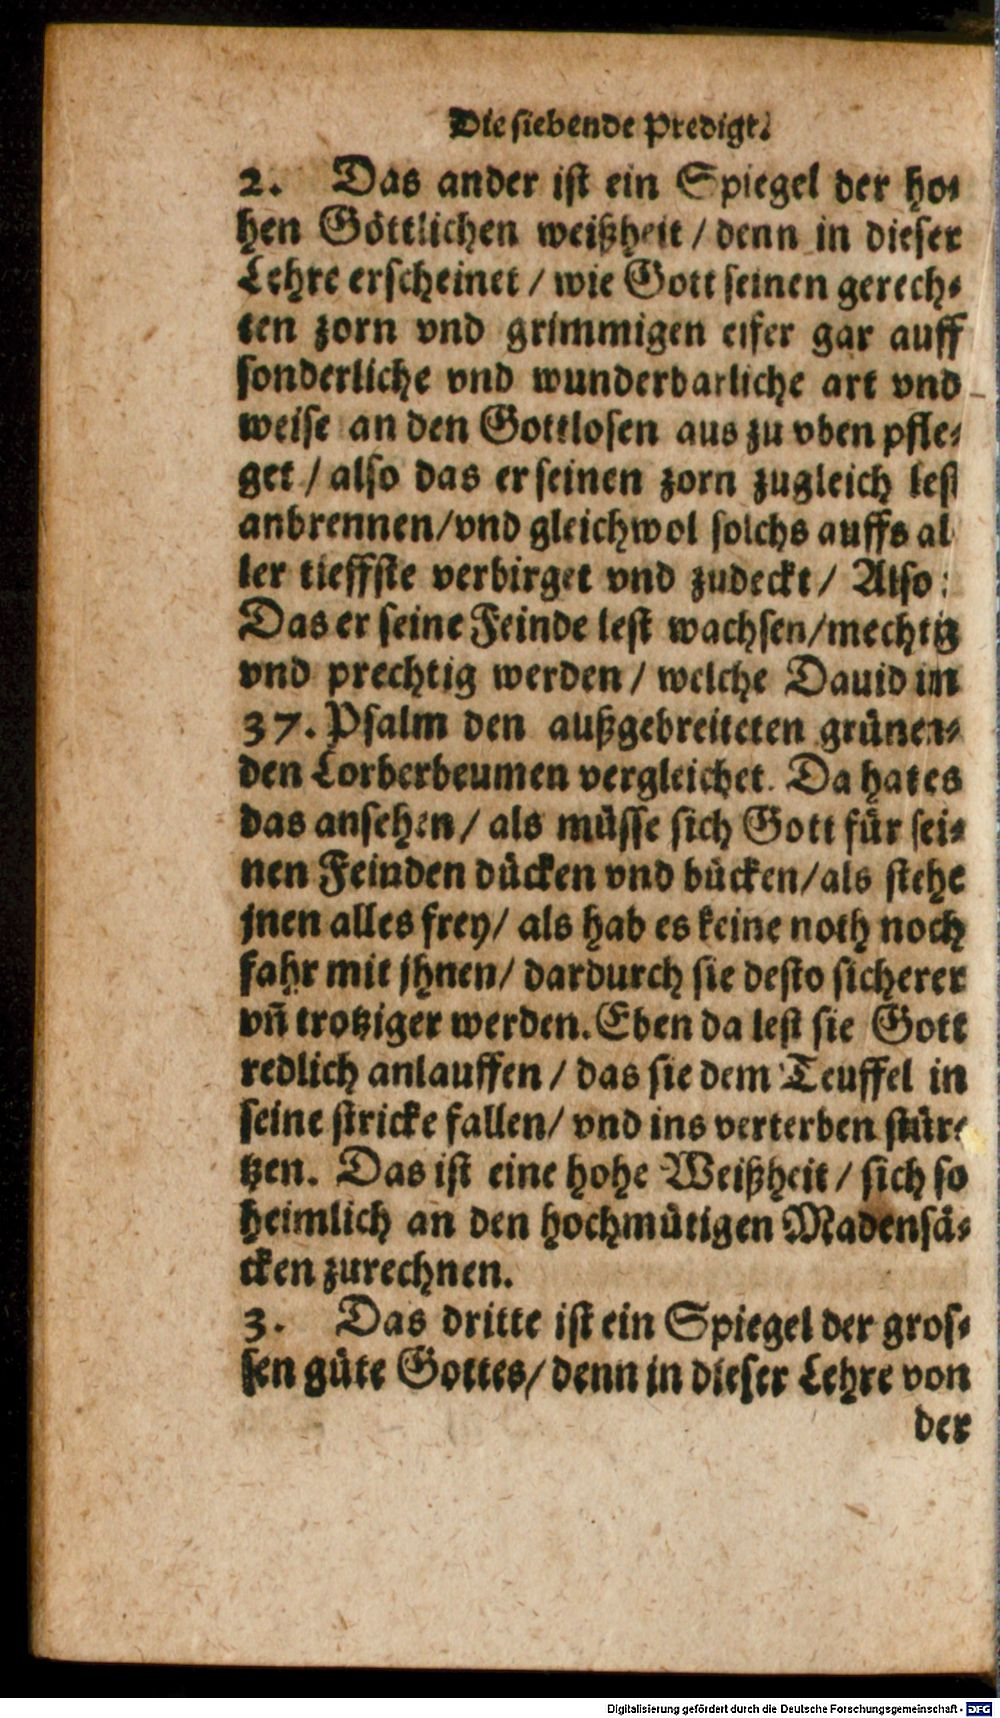 Die siebende Predigt.
2. Das ander ist ein Spiegel der ho-
hen Göttlichen weißheit / denn in dieser
Lehre erscheinet / wie Gott seinen gerech-
ten zorn vnd grimmigen eifer gar auff
sonderliche vnd wunderbarliche art vnd
weise an den Gottlosen aus zu vben pfle-
get / also das er seinen zorn zugleich lest
anbrennen/vnd gleichwol solchs auffs al
ler tieffste verbirget vnd zudeckt / Also:
Das er seine Feinde lest wachsen/mechtig
vnd prechtig werden / welche Dauid im
37. Psalm den außgebreiteten grünen-
den Lorberbeumen vergleichet. Da hat es
das ansehen / als müsse sich Gott für sei-
nen Feinden dücken vnd bücken/als stehe
jnen alles frey/ als hab es keine noth noch
fahr mit jhnen/ dardurch sie desto sicherer
vñ trotziger werden. Eben da lest sie Gott
redlich anlauffen / das sie dem Teuffel in
seine stricke fallen/ vnd ins verterben stür-
tzen. Das ist eine hohe Weißheit / sich so
heimlich an den hochmütigen Madensä-
cken zurechnen.
3. Das dritte ist ein Spiegel der gros-
sen güte Gottes/ denn in dieser Lehre von
der
Digitalisierung gefördert durch die Deutsche Forschungsgemeinschaft - DFG